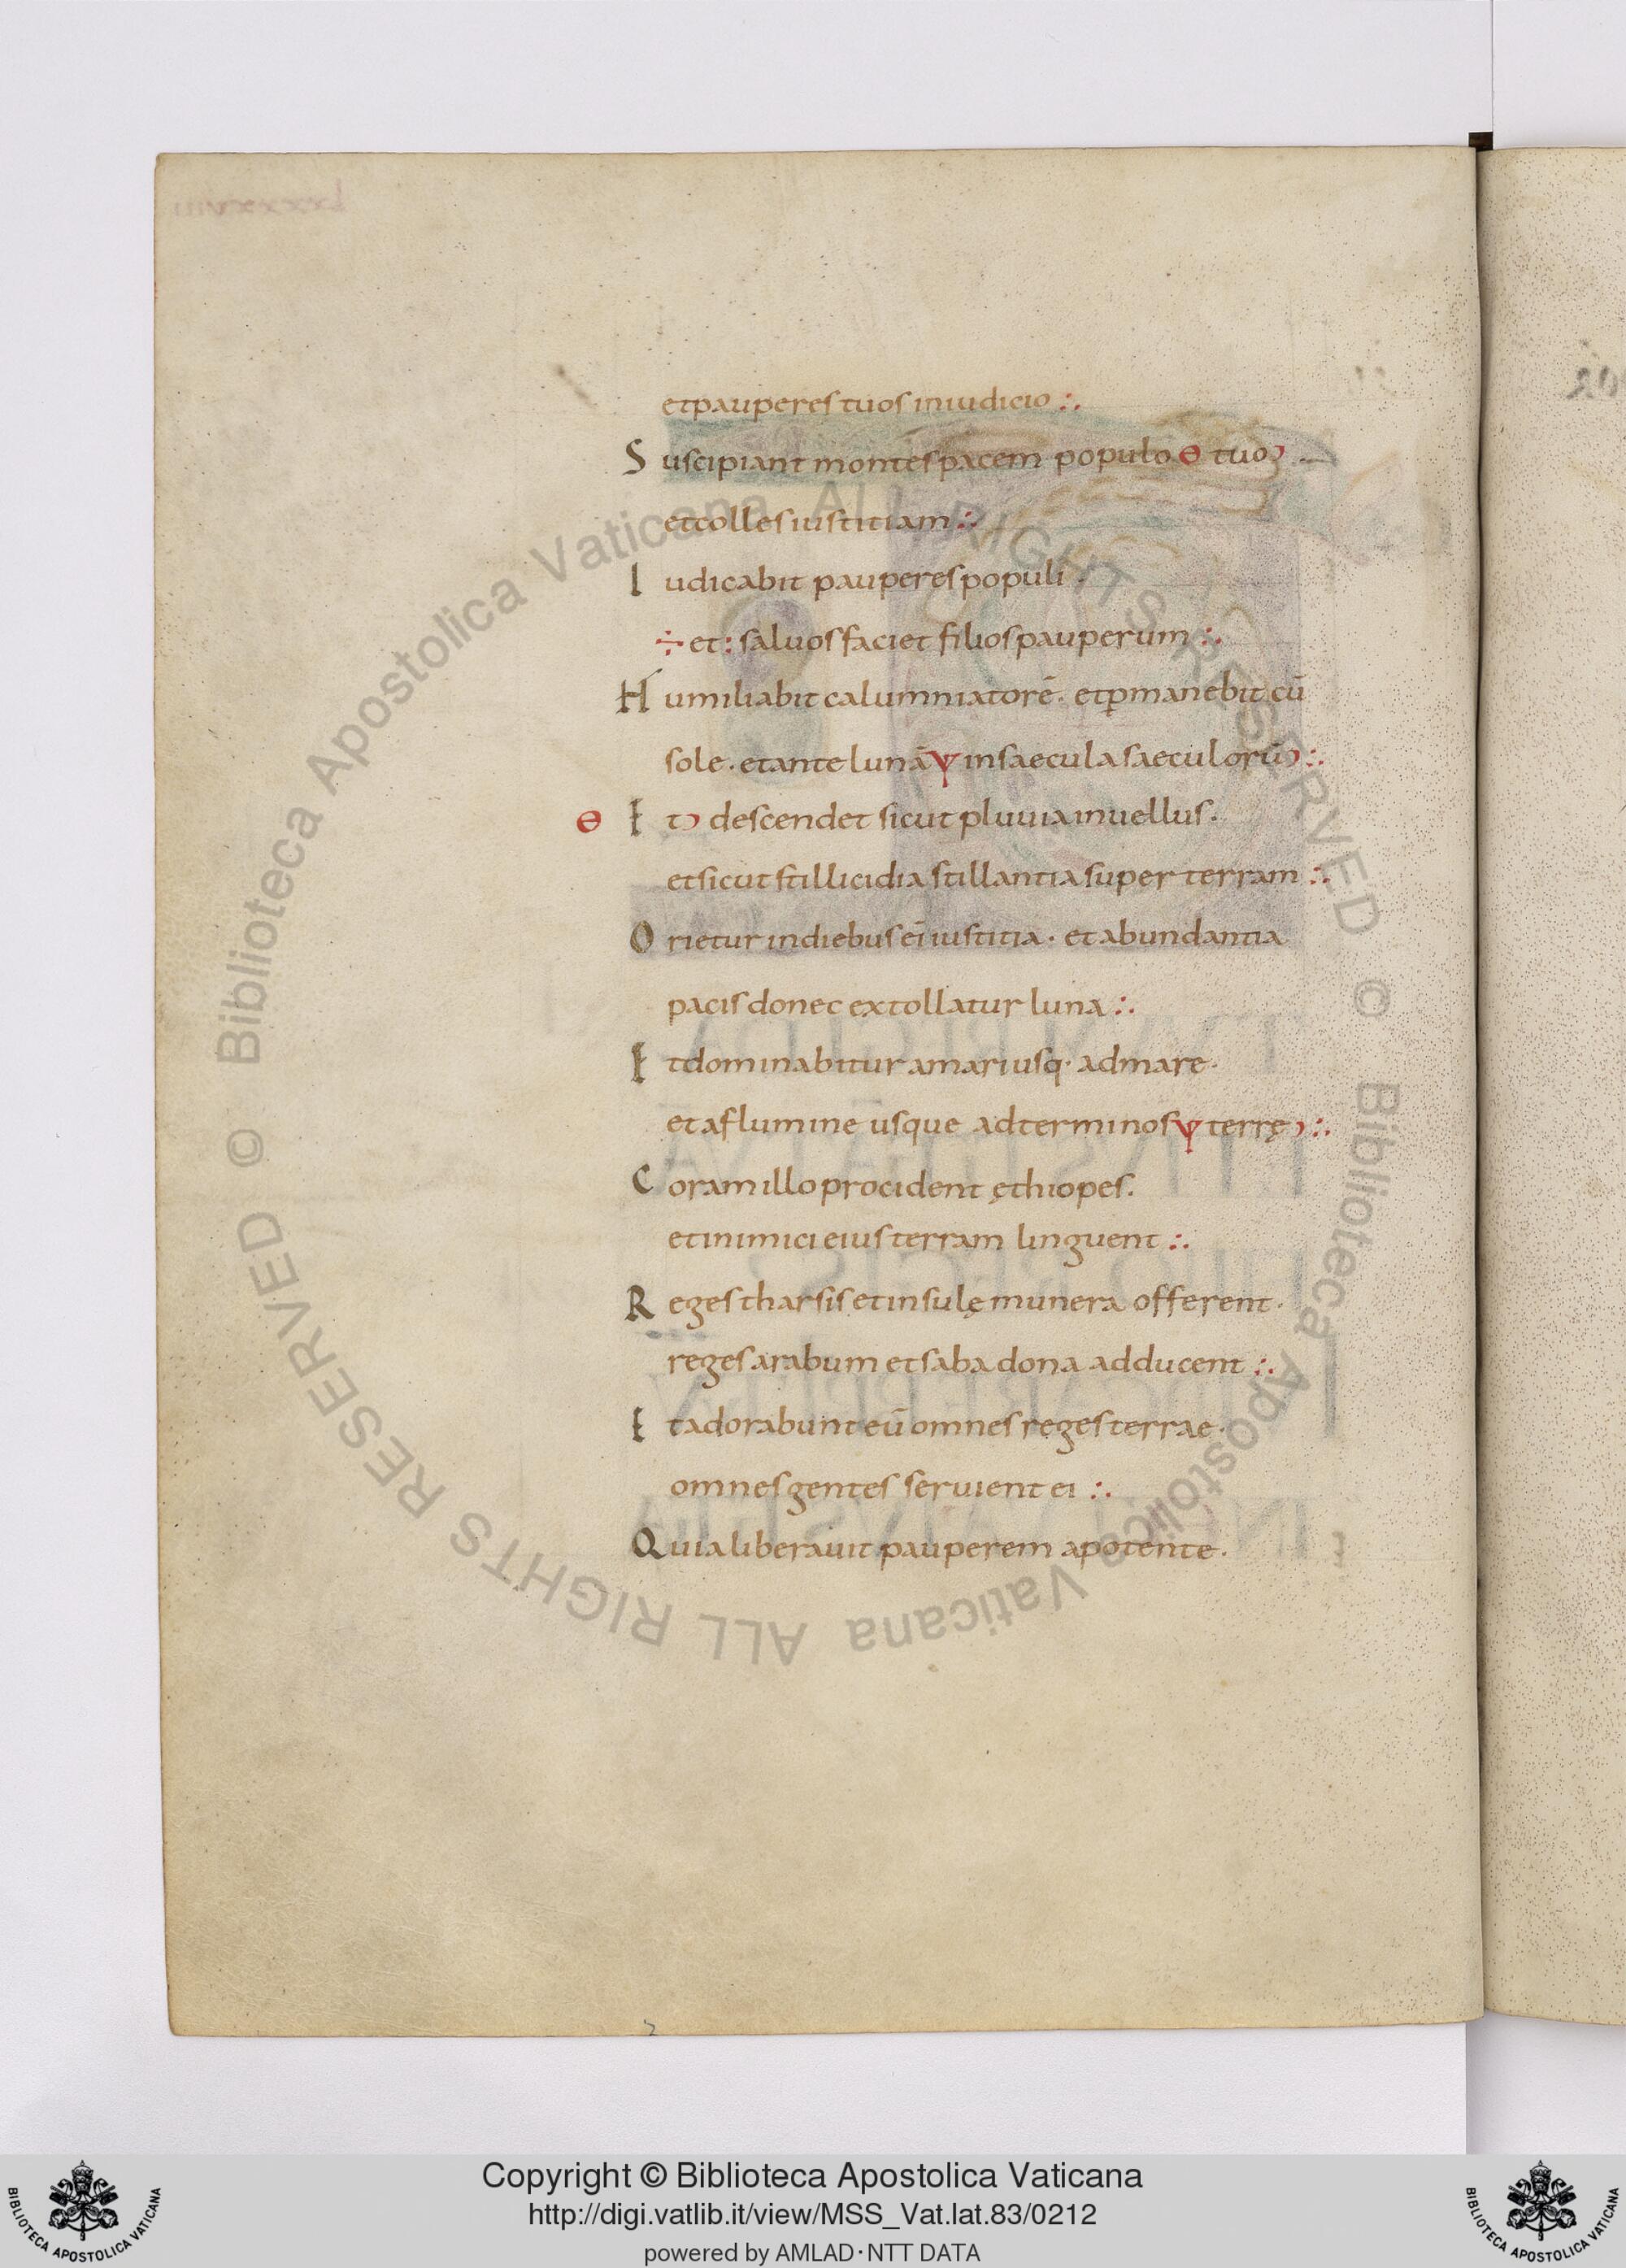 et pauperes tuos in iudicio ∴
Suscipiant montes pacem populo ɵ tuo ͻ
et colles iustitiam ∴
Iudicabit pauperes populi ·
÷ et : saluos faciet filios pauperum ∴
Humiliabit calumniatorē · et ꝑmanebit cū
sole · et ante lunā ѱ in saecula saeculorū ͻ ∴
ɵ Et ͻ descendet sicut pluuia in uellus ·
et sicut stillicidia stillantia super terram ∴
Orietur in diebus ei iustitia · et abundantia
pacis donec extollatur luna ∴
Et dominabitur a mari usq· ad mare ·
et a flumine usque ad terminos ѱ terrę ͻ ∴
Coram illo procident ęthiopes ·
et inimici eius terram linguent ∴
Reges tharsis et insulę munera offerent ·
reges arabum et saba dona adducent ∴
Et adorabunt eū omnes reges terrae ·
omnes gentes seruient ei ∴
Quia liberauit pauperem a potente ·
© Biblioteca Apostolica Vaticana ALL RIGHTS RESERVED © Biblioteca Apostolica Vaticana ALL RIGHTS RESERVED
Copyright © Biblioteca Apostolica Vaticana
http://digi.vatlib.it/view/MSS_Vat.lat.83/0212
powered by AMLAD·NTT DATA
BIBLIOTECA APOSTOLICA VATICANA
BIBLIOTECA APOSTOLICA VATICANA